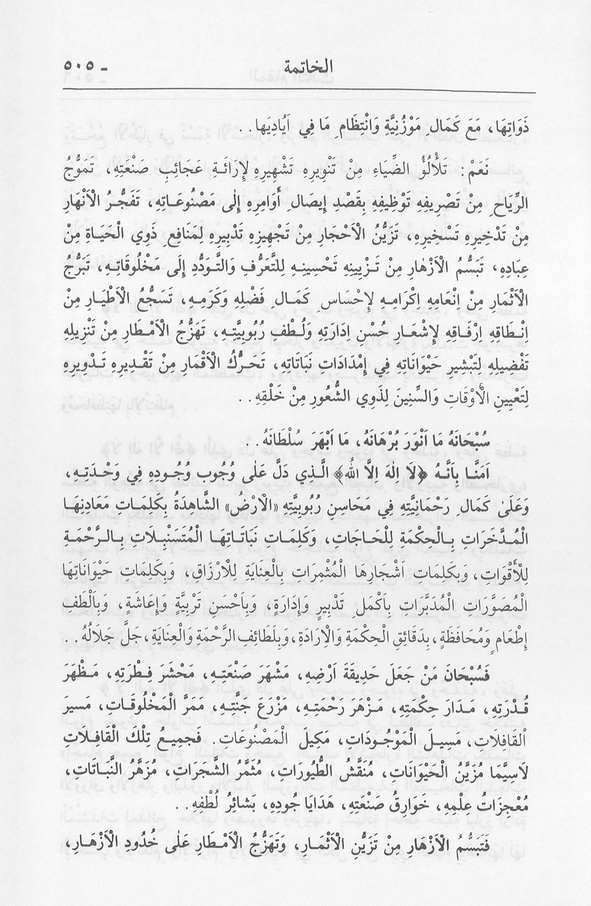 الخاتمة ـ ٥٠٥
ذَوَاتِهَا، مَعَ كَمَالِ مَوْزُنِيَّةِ وَانْتِظَامِ مَا فِي اَيَادِيهَا..
نَعَمْ: تَلَأْلُؤُ الضِّيَاءِ مِنْ تَنْوِيرِهِ تَشْهِيرِهِ لِإِرَائَةِ عَجَائِبِ صَنْعَتِهِ، تَمَوُّجُ
الرِّيَاحِ مِنْ تَصْرِيفِهِ تَوْظِيفِهِ بِقَصْدِ إِيصَالِ أَوَامِرِهِ إِلٰى مَصْنُوعَاتِهِ، تَفَجُّرُ الْاَنْهَارِ
مِنْ تَدْخِيرِهِ تَسْخِيرِهِ، تَزَيُّنُ الْاَحْجَارِ مِنْ تَجْهِيزِهِ تَدْبِيرِهِ لِمَنَافِعِ ذَوِي الْحَيَاةِ مِنْ
عِبَادِهِ، تَبَسُّمُ الْاَزْهَارِ مِنْ تَزْيِينِهِ تَحْسِينِهِ لِلتَّعَرُّفِ وَالتَّوَدُّدِ إِلَى مَخْلُوقَاتِهِ، تَبَرُّجُ
الْاَثْمَارِ مِنْ اِنْعَامِهِ اِكْرَامِهِ لِإِحْسَاسِ كَمَالِ فَضْلِهِ وَكَرَمِهِ، تَسَجُّعُ الْاَطْيَارِ مِنْ
اِنْطَاقِهِ اِرْفَاقِهِ لِإِشْعَارِ حُسْنِ اِدَارَتِهِ وَلُطْفِ رُبُوبِيَّتِهِ، تَهَزُّجُ الْاَمْطَارِ مِنْ تَنْزِيلِهِ
تَفْضِيلِهِ لِتَبْشِيرِ حَيْوَانَاتِهِ فِي إِمْدَادَاتِ نَبَاتَاتِهِ، تَحَرُّكُ الْاَقْمَارِ مِنْ تَقْدِيرِهِ تَدْوِيرِهِ
لِتَعْيِينِ الْاَوْقَاتِ وَالسِّنِينَ لِذَوِي الشُّعُورِ مِنْ خَلْقِهِ..
سُبْحَانَهُ مَا اَنْوَرَ بُرْهَانَهُ، مَا اَبْهَرَ سُلْطَانَهُ..
اٰمَنَّا بِاَنَّهُ ﴿لَا اِلٰهَ اِلَّا اللهُ﴾ الَّذِي دَلَّ عَلٰى وُجُوبِ وُجُودِهِ فِي وَحْدَتِهِ،
وَعَلَىٰ كَمَالِ رَحْمَانِيَّتِهِ فِي مَحَاسِنِ رُبُوبِيَّتِهِ «الْاَرْضُ» الشَّاهِدَةُ بِكَلِمَاتِ مَعَادِنِهَا
الْمُدَّخَرَاتِ بِالْحِكْمَةِ لِلْحَاجَاتِ، وَكَلِمَاتِ نَبَاتَاتِهَا الْمُتَسَنْبِلَاتِ بِالرَّحْمَةِ
لِلْاَقْوَاتِ، وَبِكَلِمَاتِ اَشْجَارِهَا الْمُثْمِرَاتِ بِالْعِنَايَةِ لِلْاَرْزَاقِ، وَبِكَلِمَاتِ حَيْوَانَاتِهَا
الْمُصَوَّرَاتِ الْمُدَبَّرَاتِ بِاَكْمَلِ تَدْبِيرٍ وَإِدَارَةٍ، وَبِاَحْسَنِ تَرْبِيَّةٍ وَإِعَاشَةٍ، وَبِاَلْطَفِ
إِطْعَامٍ وَمُحَافَظَةٍ، بِدَقَائِقِ الْحِكْمَةِ وَالْاِرَادَةِ، وَبِلَطَائِفِ الرَّحْمَةِ وَالْعِنَايَةِ، جَلَّ جَلَالُهُ..
فَسُبْحَانَ مَنْ جَعَلَ حَدِيقَةَ اَرْضِهِ، مَشْهَرَ صَنْعَتِهِ، مَحْشَرَ فِطْرَتِهِ، مَظْهَرَ
قُدْرَتِهِ، مَدَارَ حِكْمَتِهِ، مَزْهَرَ رَحْمَتِهِ، مَزْرَعَ جَنَّتِهِ، مَمَرَّ الْمَخْلُوقَاتِ، مَسِيرَ
الْقَافِلَاتِ، مَسِيلَ الْمَوْجُودَاتِ، مَكِيلَ الْمَصْنُوعَاتِ. فجميعُ تِلْكَ الْقَافِلَاتِ
لَاسِيَّمَا مُزَيَّنُ الْحَيْوَانَاتِ، مُنَقَّشُ الطُّيُورَاتِ، مُثَمَّرُ الشَّجَرَاتِ، مُزَهَّرُ النَّبَاتَاتِ،
مُعْجِزَاتُ عِلْمِهِ، خَوَارِقُ صَنْعَتِهِ، هَدَايَا جُودِهِ، بَشَائِرُ لُطْفِهِ..
فَتَبَسُّمُ الْاَزْهَارِ مِنْ تَزَيُّنِ الْاَثْمَارِ، وَتَهَزُّجُ الْاَمْطَارِ عَلٰى خُدُودِ الْاَزْهَارِ،